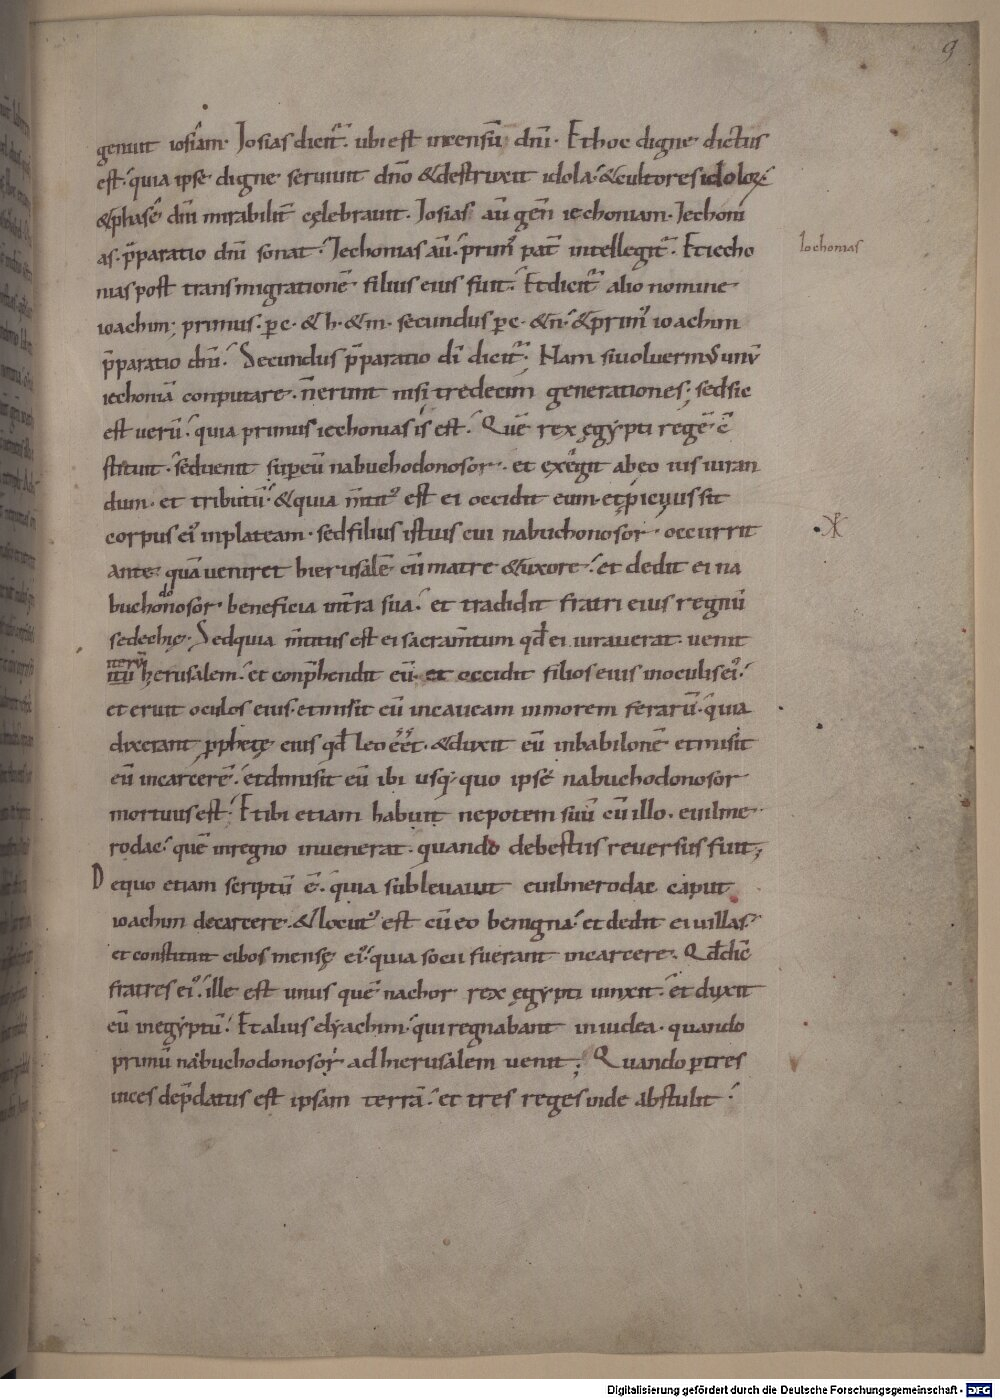 9
genuit iosiam· Iosias dicit̄· ubi est incensū dn̄i· Et hoc digne dictus
est· quia ipse digne seruiuit dn̄o & destruxit idola· & cultores idoloꝝ
& phasē dn̄i mirabilit̄ cęlebrauit· Iosias aū gen̄ iechoniam· Iechoni
as· p̄paratio dn̄i sonat· Iechonias aū· prim᾽ pat̄ intellegit̄· Et iecho
Iechonias
nias post transmigrationē filius eius fuit· Et dicit̄ alio nomine
ioachim; primus· per c· & h· & m· secundus per c· & n· & prim᾽ ioachim
p̄paratio dn̄i· Secundus p̄paratio dī dicit̄· Nam si uoluerim᾽ unū
iechoniā conputare· n̄ erunt nisi tredecim generationes; sed sic
est uerū· quia primus iechonias is est· Quē rex ęgypti regē c̄
stituit· sed uenit sup eū nabuchodonosor· et exegit ab eo ius iuran
dum· et tributū· & quia m̄tit᾽ est ei occidit eum· et ꝓiciuus sit
corpus ei᾽ in plateam· sed filius istius cui nabuchonosor· occurrit
ante quā ueniret hierusalē cū matre & uxore· et dedit ei na
do
buchonosor· beneficia int̄ra sua· et tradidit fratri eius regnū
sedechię· Sed quia m̄titus est ei sacram̄tum qđ ei iurauerat· uenit
iterū
itū herusalem· et conp̄hendit eū· et occidit filios eius in oculis ei᾽·
et eruit oculos eius· et misit eū in caueam in morem ferarū· quia
dixerant ꝓphetę eius qđ leo eēt· & duxit eū in babilonē et misit
eū in carcerē· et dimisit eū ibi usq; quo ipse nabuchodonosor
mortuus est· Et ibi etiam habuit nepotem suū cū illo· euilme
rodac· quē in regno inuenerat· quando de bestiis reuersus fuit;
De quo etiam scriptū ē· quia subleuauit euilmerodac caput
ioachim de carcere· & locut᾽ est cū eo benigna· et dedit ei uillas·
et constituit cibos mensę ei᾽· quia socii fuerant in carcere· Qđ dic̄
fratres ei᾽· ille est unus quē nachor rex ęgypti uinxit· et duxit
eū in egyptū· Et alius elyachim· qui regnabant in iudea· quando
primū nabuchodonosor· ad hierusalem uenit; Quando p tres
uices dep̄datus est ipsam terrā· et tres reges inde abstulit·
Digitalisierung gefördert durch die Deutsche Forschungsgemeinschaft - DFG